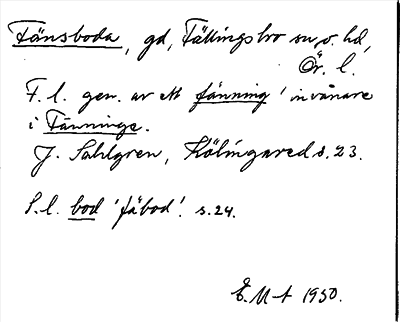 Fänsboda, gd, Fällingsbro sn o. hd,
Ör. l.
F. l. gen. av ett fänning 'invånare
i Fänninge.
J. Sahlgren, Kölingared s. 23.
S. l. bod 'fäbod'. s. 24.
E. M-t 1930.